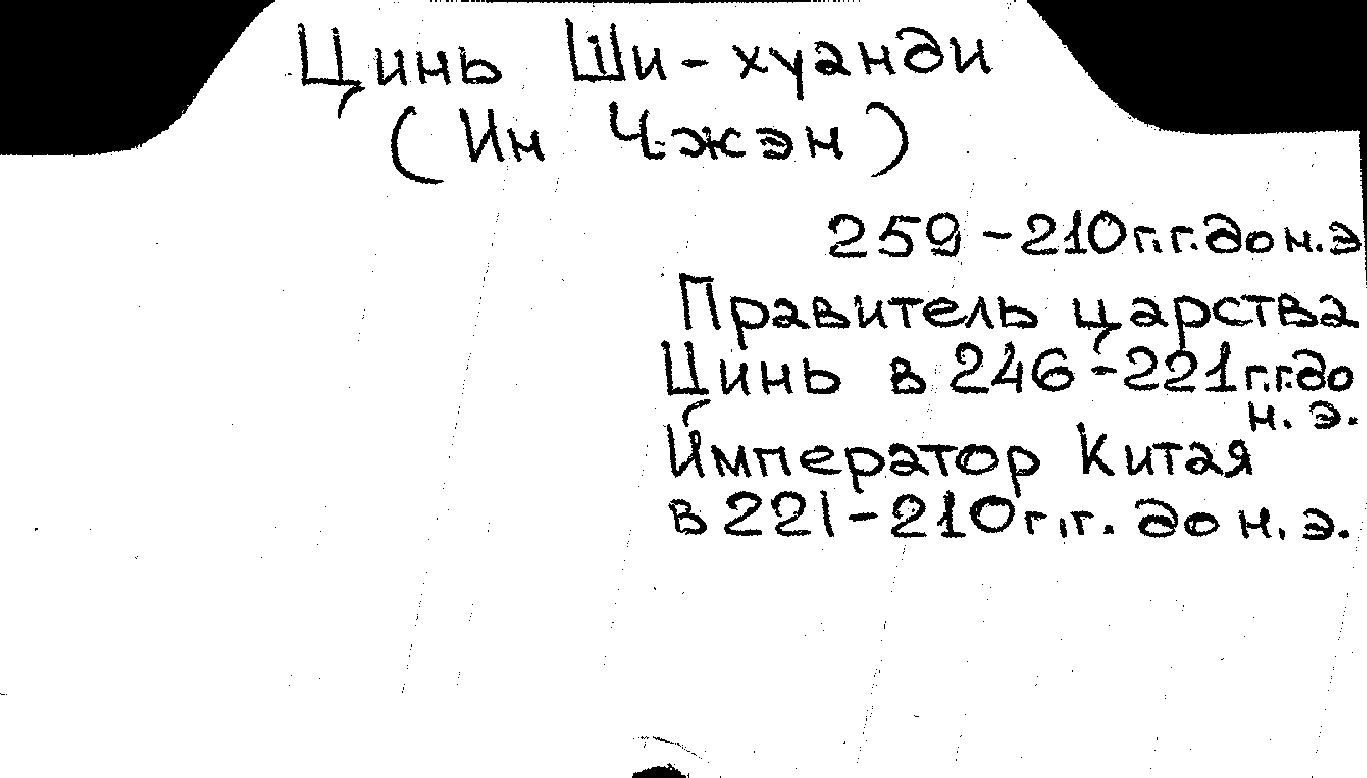 Цинь Ши-хуанди
(Ин Чжэн)
259-210г.г. до н.э
Правитель царства
Цинь в 246-221г.г. до
н. э.
Император Китая
в 221-210г.г. до н. э.